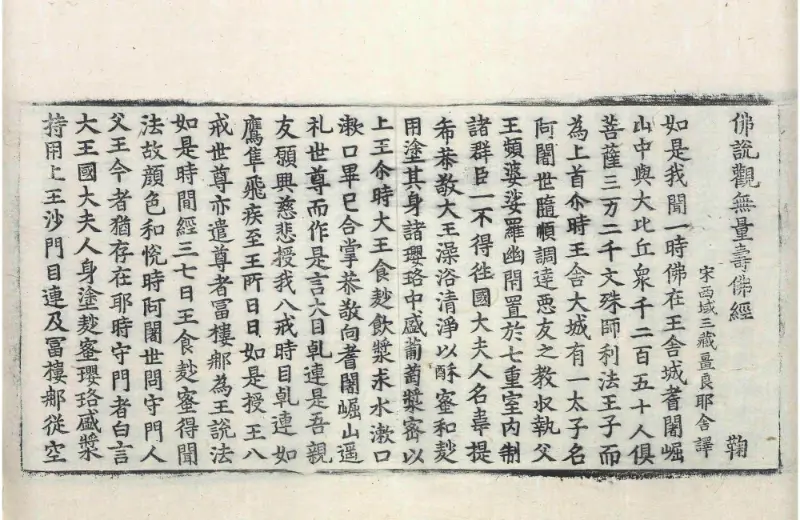 佛說觀無量壽佛經 鞠
宋西域三藏畺良耶舍譯
如是我聞一時佛在王舍城耆闍崛
山中與大比丘眾千二百五十人俱
菩薩三万二千文殊師利法王子而
為上首尒時王舍大城有一太子名
阿闍世隨順調達惡友之教收執父
王頻婆娑羅幽閇置於七重室內制
諸群臣一不得往國大夫人名韋提
希恭敬大王澡浴清淨以酥蜜和麨
用塗其身諸瓔珞中盛蒲萄漿密以
上王尒時大王食麨飲漿求水漱口
漱口畢已合掌恭敬向耆闍崛山遥
礼世尊而作是言大目乹連是吾親
友願興慈悲授我八戒時目乹連如
鷹隼飛疾至王所日日如是授王八
戒世尊亦遣尊者冨樓那為王說法
如是時間經三七日王食麨蜜得聞
法故顏色和悅時阿闍世問守門人
父王今者猶存在耶時守門者白言
大王國大夫人身塗麨蜜瓔珞盛漿
持用上王沙門目連及冨樓那從空